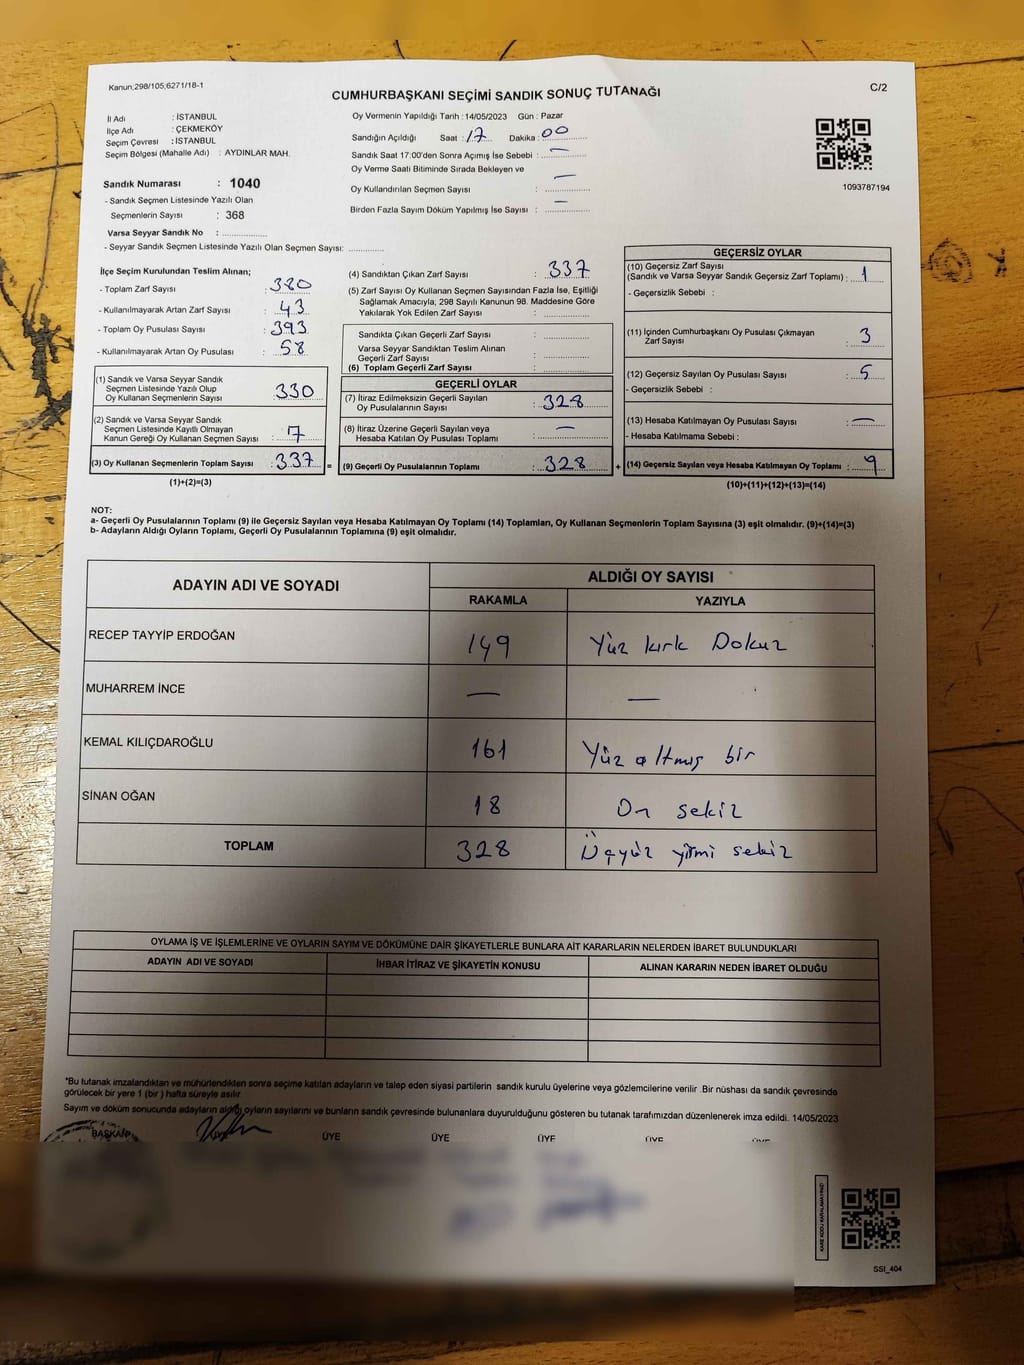 Kanun;298/105;6271/18-1
CUMHURBAŞKANI SEÇİMİ SANDIK SONUÇ TUTANAĞI
C/2
İl Adı : İSTANBUL
İlçe Adı : ÇEKMEKÖY
Seçim Çevresi : İSTANBUL
Seçim Bölgesi (Mahalle Adı) : AYDINLAR MAH.
Sandık Numarası : 1040
- Sandık Seçmen Listesinde Yazılı Olan
Seçmenlerin Sayısı : 368
Varsa Seyyar Sandık No : ..................
- Seyyar Sandık Seçmen Listesinde Yazılı Olan Seçmen Sayısı: ..............
Oy Vermenin Yapıldığı Tarih : 14/05/2023 Gün : Pazar
Sandığın Açıldığı Saat : 17 Dakika : 00
Sandık Saat 17:00'den Sonra Açımış İse Sebebi : —
Oy Verme Saati Bitiminde Sırada Bekleyen ve
Oy Kullandırılan Seçmen Sayısı : —
Birden Fazla Sayım Döküm Yapılmış İse Sayısı : —
1093787194
İlçe Seçim Kurulundan Teslim Alınan;
- Toplam Zarf Sayısı : 380
- Kullanılmayarak Artan Zarf Sayısı : 43
- Toplam Oy Pusulası Sayısı : 393
- Kullanılmayarak Artan Oy Pusulası : 58
(1) Sandık ve Varsa Seyyar Sandık
Seçmen Listesinde Yazılı Olup
Oy Kullanan Seçmenlerin Sayısı : 330
(2) Sandık ve Varsa Seyyar Sandık
Seçmen Listesinde Kayıtlı Olmayan
Kanun Gereği Oy Kullanan Seçmen Sayısı : 7
(3) Oy Kullanan Seçmenlerin Toplam Sayısı : 337 =
(1)+(2)=(3)
(4) Sandıktan Çıkan Zarf Sayısı : 337
(5) Zarf Sayısı Oy Kullanan Seçmen Sayısından Fazla İse, Eşitliği
Sağlamak Amacıyla, 298 Sayılı Kanunun 98. Maddesine Göre
Yakılarak Yok Edilen Zarf Sayısı : ..............
Sandıkta Çıkan Geçerli Zarf Sayısı : ..............
Varsa Seyyar Sandıktan Teslim Alınan
Geçerli Zarf Sayısı : ..............
(6) Toplam Geçerli Zarf Sayısı : ..............
GEÇERLİ OYLAR
(7) İtiraz Edilmeksizin Geçerli Sayılan
Oy Pusulalarının Sayısı : 328
(8) İtiraz Üzerine Geçerli Sayılan veya
Hesaba Katılan Oy Pusulası Toplamı : —
(9) Geçerli Oy Pusulalarının Toplamı : 328 +
GEÇERSİZ OYLAR
(10) Geçersiz Zarf Sayısı
(Sandık ve Varsa Seyyar Sandık Geçersiz Zarf Toplamı) : 1
- Geçersizlik Sebebi :
(11) İçinden Cumhurbaşkanı Oy Pusulası Çıkmayan
Zarf Sayısı : 3
(12) Geçersiz Sayılan Oy Pusulası Sayısı : 5
- Geçersizlik Sebebi :
(13) Hesaba Katılmayan Oy Pusulası Sayısı : —
- Hesaba Katılmama Sebebi :
(14) Geçersiz Sayılan veya Hesaba Katılmayan Oy Toplamı : 9
(10)+(11)+(12)+(13)=(14)
NOT:
a- Geçerli Oy Pusulalarının Toplamı (9) ile Geçersiz Sayılan veya Hesaba Katılmayan Oy Toplamı (14) Toplamları, Oy Kullanan Seçmenlerin Toplam Sayısına (3) eşit olmalıdır. (9)+(14)=(3)
b- Adayların Aldığı Oyların Toplamı, Geçerli Oy Pusulalarının Toplamına (9) eşit olmalıdır.
ADAYIN ADI VE SOYADI ALDIĞI OY SAYISI
RAKAMLA YAZIYLA
RECEP TAYYİP ERDOĞAN 149 Yüz kırk Dokuz
MUHARREM İNCE — —
KEMAL KILIÇDAROĞLU 161 Yüz altmış bir
SİNAN OĞAN 18 On sekiz
TOPLAM 328 Üçyüz yirmi sekiz
OYLAMA İŞ VE İŞLEMLERİNE VE OYLARIN SAYIM VE DÖKÜMÜNE DAİR ŞİKAYETLERLE BUNLARA AİT KARARLARIN NELERDEN İBARET BULUNDUKLARI
ADAYIN ADI VE SOYADI İHBAR İTİRAZ VE ŞİKAYETİN KONUSU ALINAN KARARIN NEDEN İBARET OLDUĞU
*Bu tutanak imzalandıktan ve mühürlendikten sonra seçime katılan adayların ve talep eden siyasi partilerin sandık kurulu üyelerine veya gözlemcilerine verilir .Bir nüshası da sandık çevresinde
görülecek bir yere 1 (bir ) hafta süreyle asılır.
Sayım ve döküm sonucunda adayların aldığı oyların sayılarını ve bunların sandık çevresinde bulunanlara duyurulduğunu gösteren bu tutanak tarafımızdan düzenlenerek imza edildi. 14/05/2023
BAŞKAN ÜYE ÜYE ÜYE ÜYE ÜYE ÜYE
KARE KODU KARALAMAYINIZ!
SSI_404